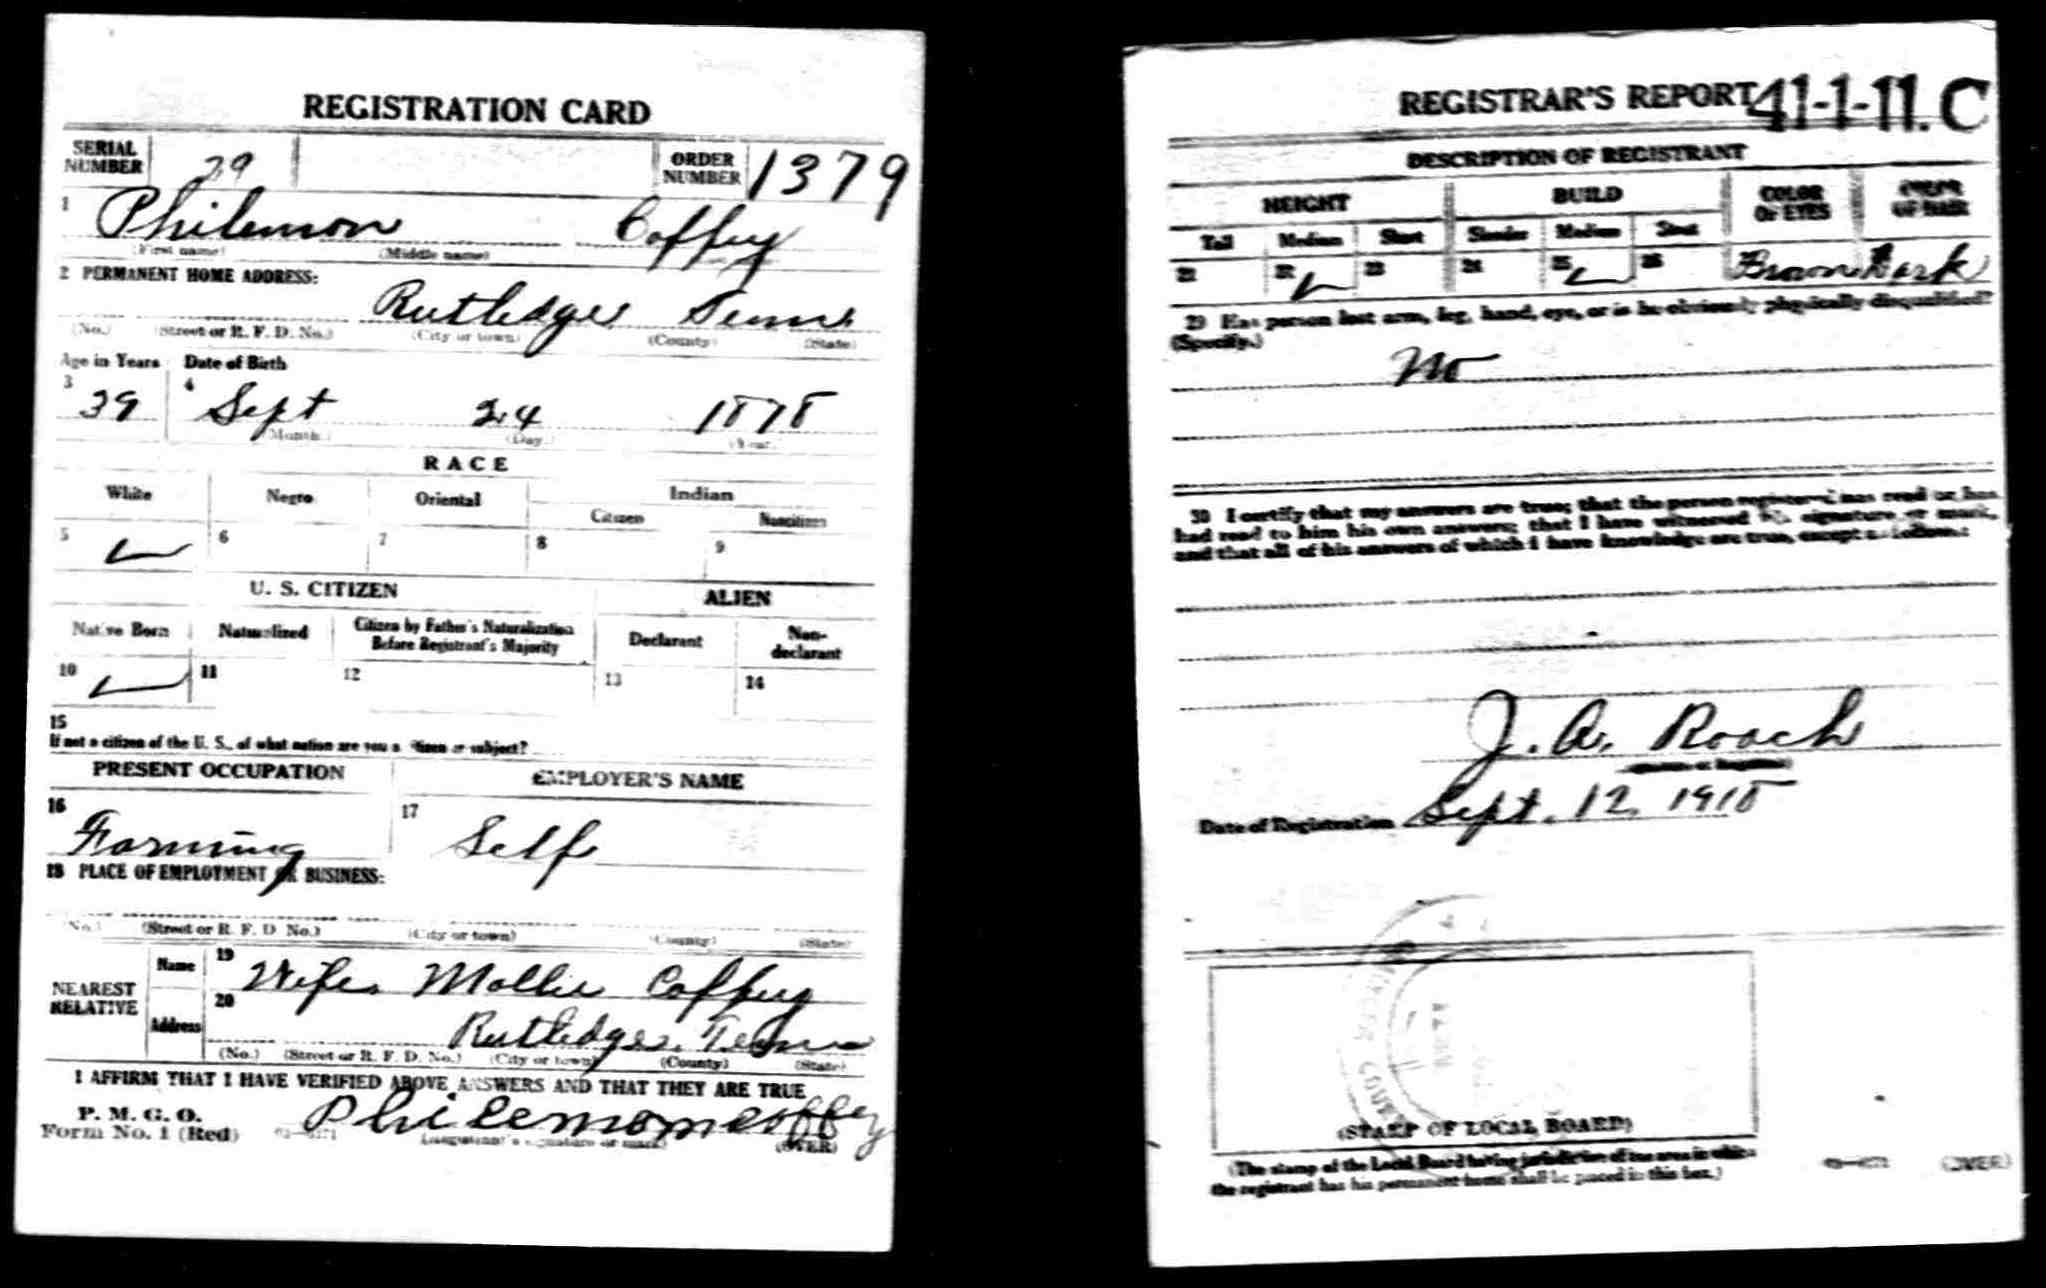 REGISTRATION CARD
SERIAL NUMBER 29 ORDER NUMBER 1379
1 Philemon Coffey
(First name) (Middle name)
2 PERMANENT HOME ADDRESS:
Rutledge Tenn
(No.) (Street or R. F. D. No.) (City or town) (County) (State)
Age in Years Date of Birth
3 39 4 Sept 24 1878
(Month.) (Day.) (Year.)
RACE
White Negro Oriental Indian
Citizen Noncitizen
5 6 7 8 9
U. S. CITIZEN ALIEN
Native Born Naturalized Citizen by Father's Naturalization Before Registrant's Majority Declarant Non-declarant
10 11 12 13 14
15
If not a citizen of the U. S., of what nation are you a citizen or subject?
PRESENT OCCUPATION EMPLOYER'S NAME
16 Farming 17 Self
18 PLACE OF EMPLOYMENT OR BUSINESS:
(No.) (Street or R. F. D. No.) (City or town) (County) (State)
NEAREST RELATIVE Name 19 Wife Mollie Coffey
Address 20 Rutledge, Tenn
(No.) (Street or R. F. D. No.) (City or town) (County) (State)
I AFFIRM THAT I HAVE VERIFIED ABOVE ANSWERS AND THAT THEY ARE TRUE
P. M. G. O.
Form No. 1 (Red) Philemon Coffey
(Registrant's signature or mark) (OVER)
REGISTRAR'S REPORT 41-1-11. C
DESCRIPTION OF REGISTRANT
HEIGHT BUILD COLOR OF EYES COLOR OF HAIR
Tall Medium Short Slender Medium Stout
21 22 23 24 25 26 Brown Dark
29 Has person lost arm, leg, hand, eye, or is he obviously physically disqualified?
(Specify.)
No
30 I certify that my answers are true; that the person registered has read or has
had read to him his own answers; that I have witnessed his signature or mark,
and that all of his answers of which I have knowledge are true, except as follows:
J. A. Roach
(Signature of Registrar)
Date of Registration Sept. 12, 1918
(STAMP OF LOCAL BOARD)
(The stamp of the Local Board having jurisdiction of the area in which
the registrant has his permanent home shall be placed in this box.)
(OVER)